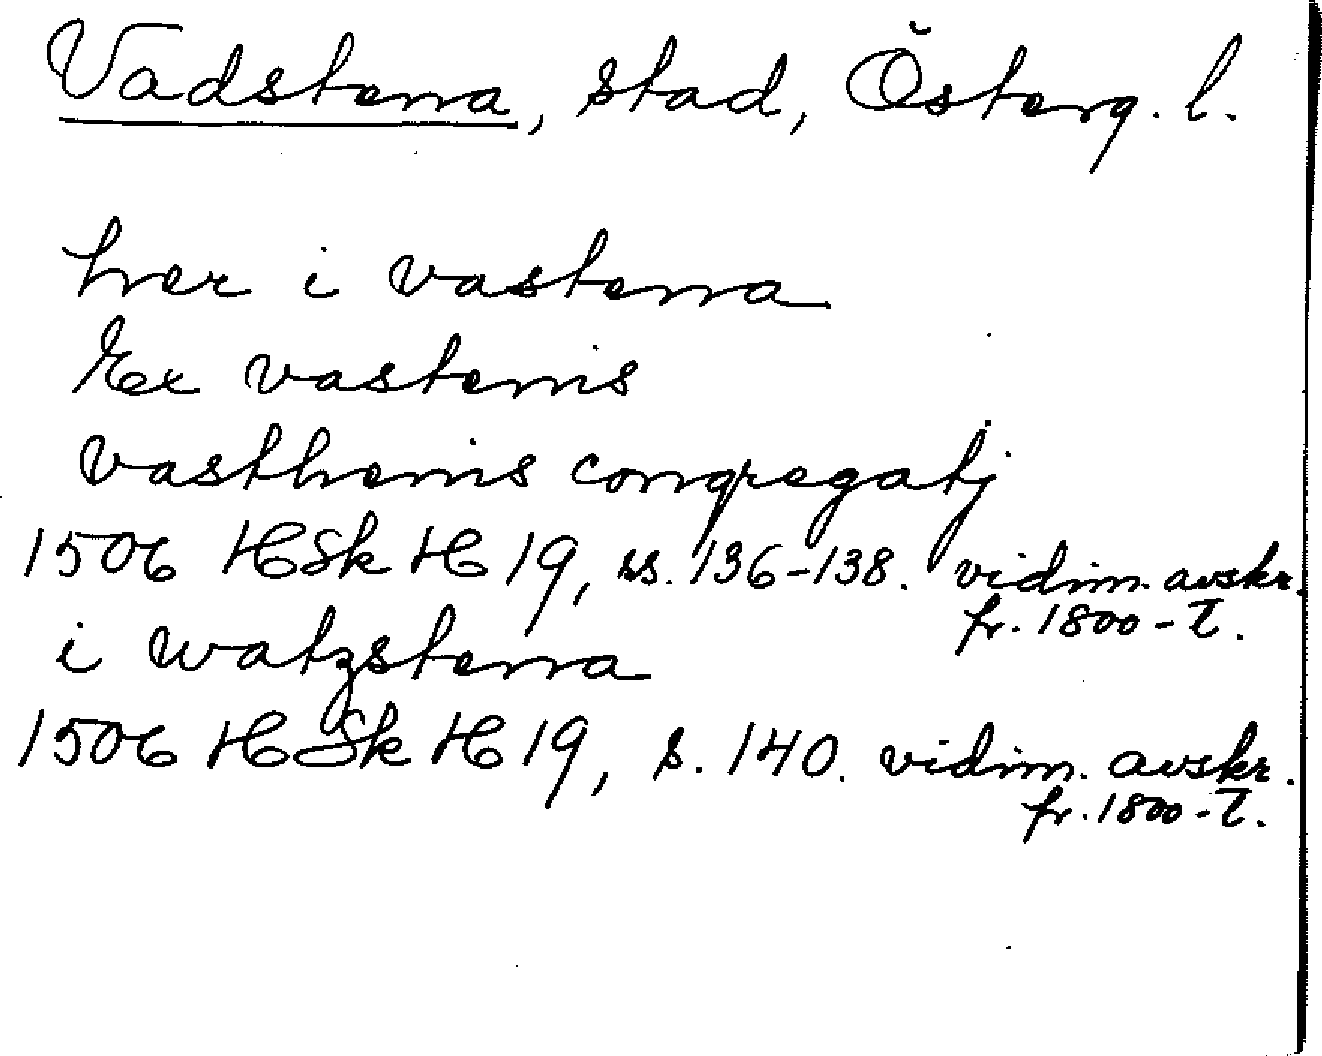 Vadstena, stad, Österg. l.
hær i vastena
Ex vastenis
vasthenis congregatj
1506 HSk H 19, ss. 136-138. vidim. avskr.
fr. 1800-t.
i watzstena
1506 HSk H 19, s. 140. vidim. avskr.
fr. 1800-t.